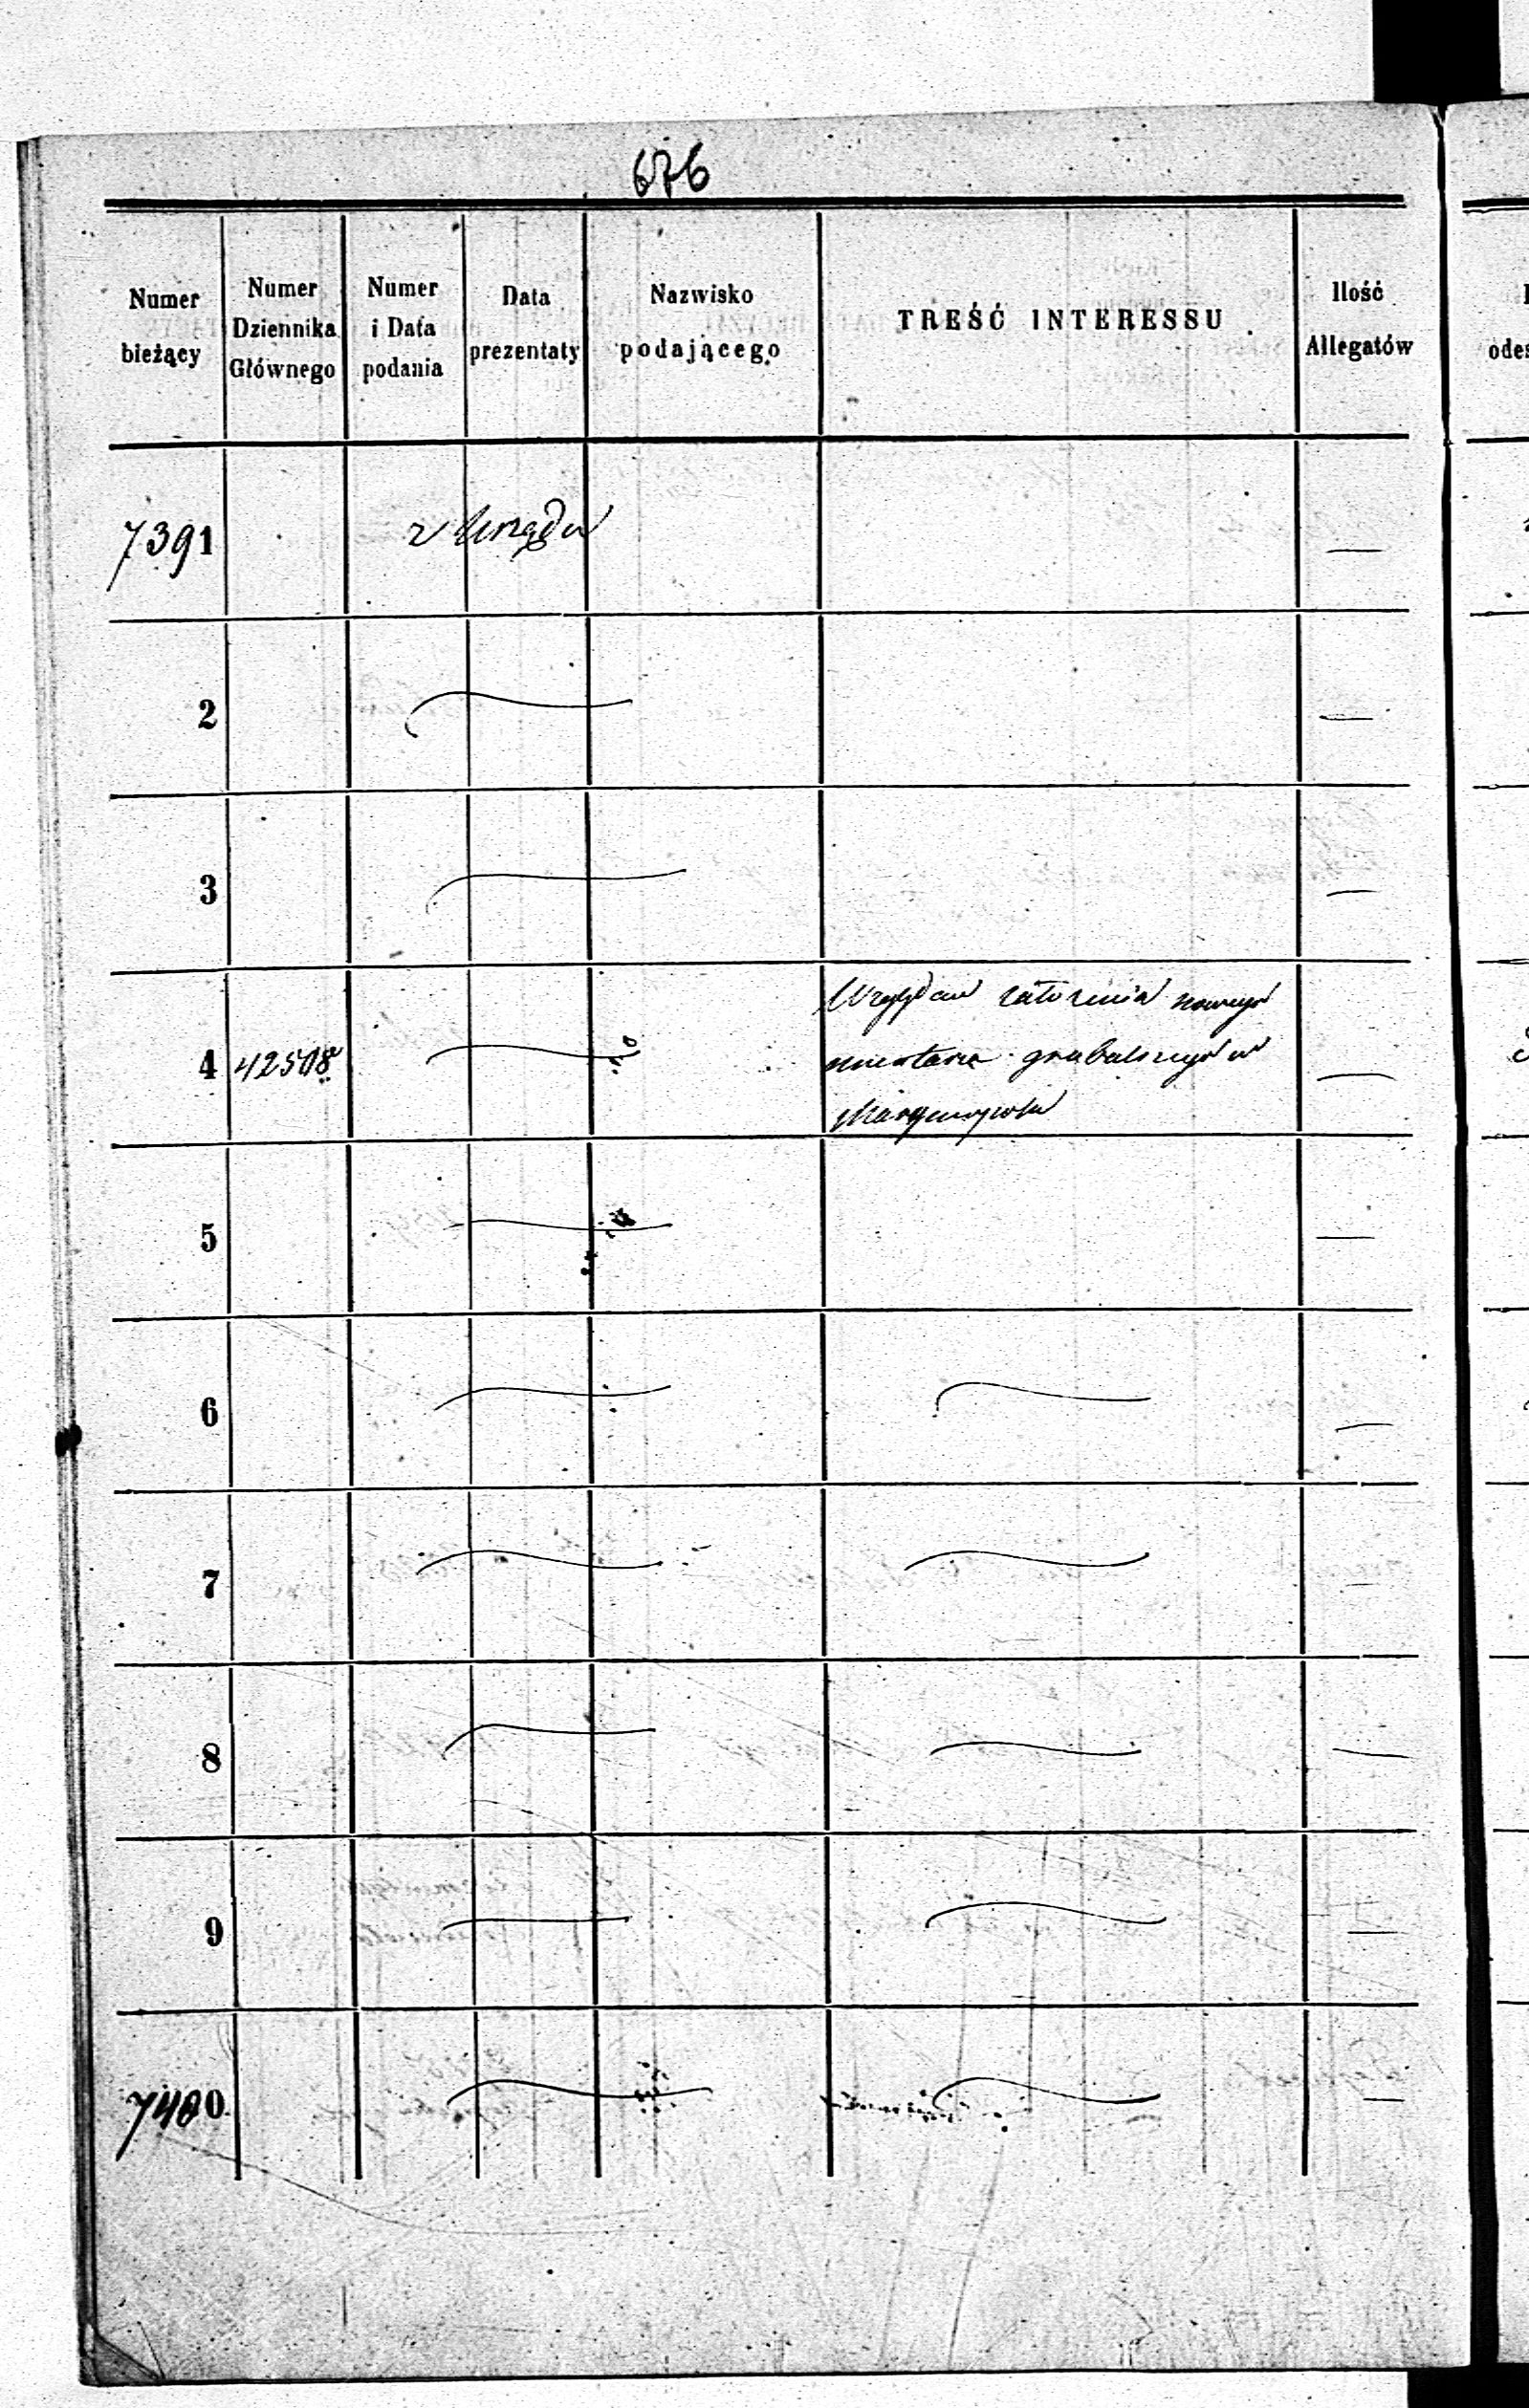 676
Numer bieżący
Numer Dziennika Głównego
Numer i Data podania
Data prezentaty
Nazwisko podającego
TREŚĆ INTERESSU
Ilość Allegatów
7391 z Urzędu —
2 —
3 —
4 42508 Względem założenia nowego —
cmentarza grzebalnego w
5 —
6 —
7 —
8 —
9 —
7400 —